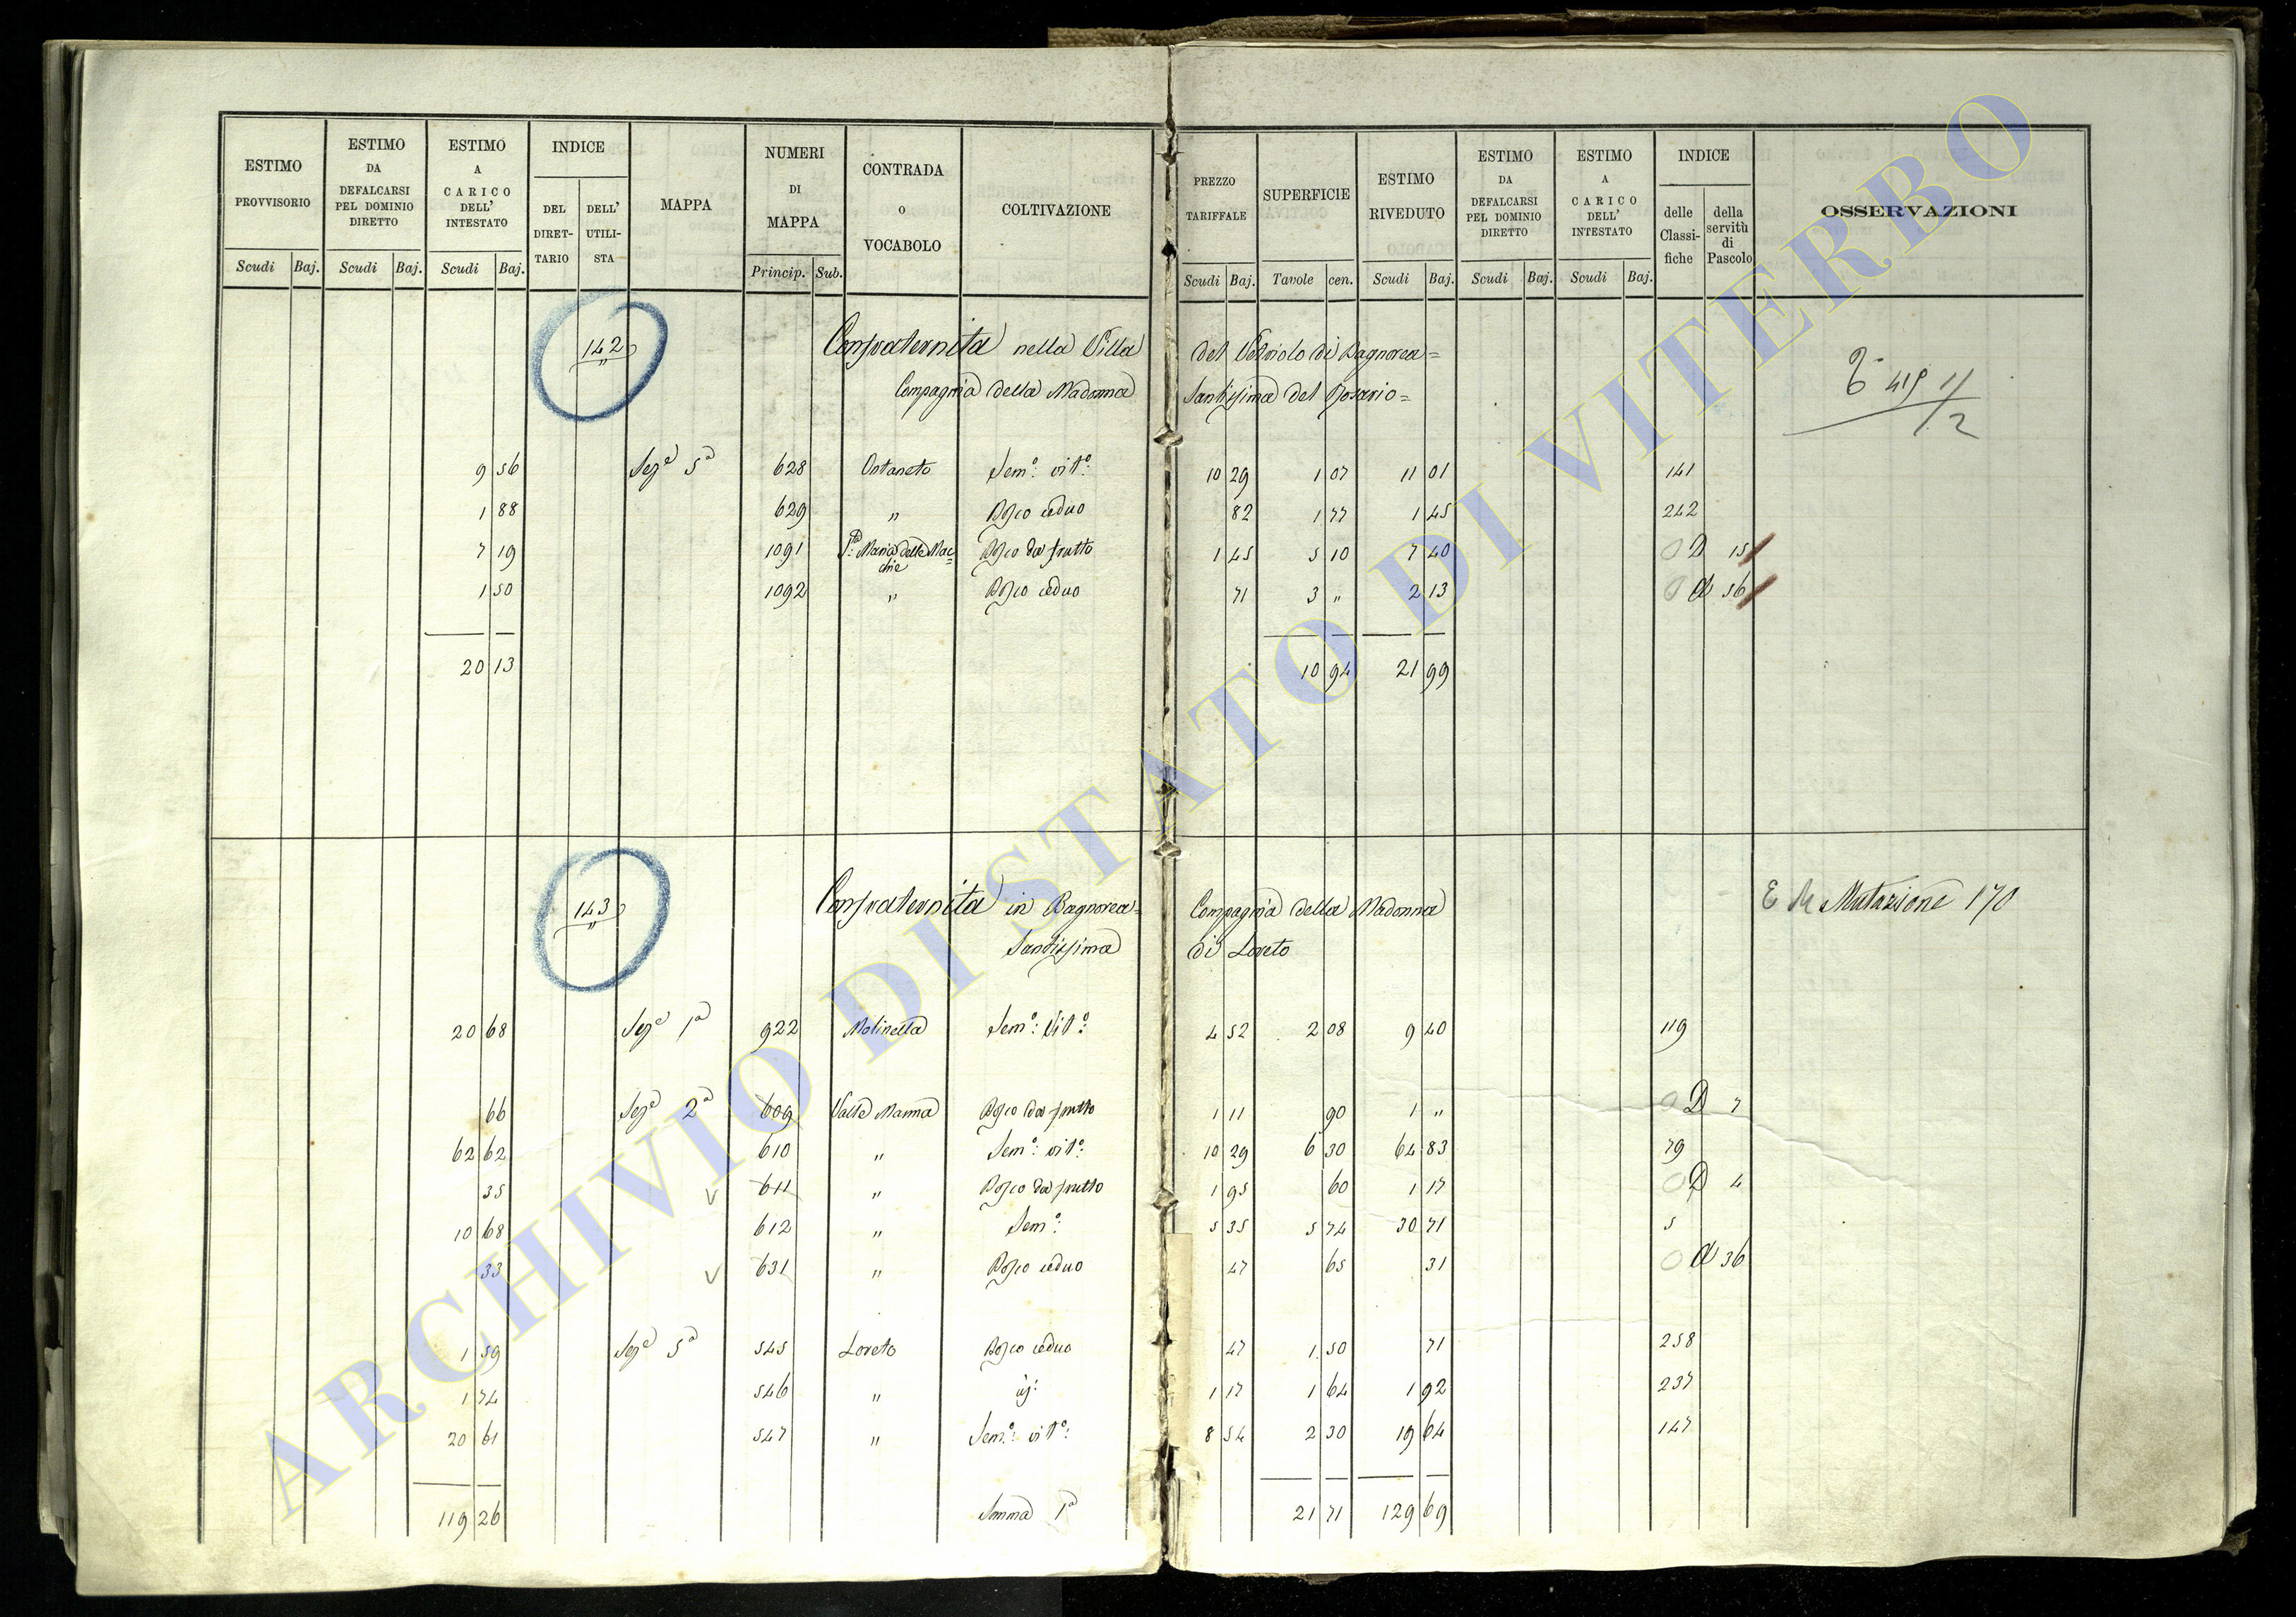 ESTIMO PROVVISORIO Scudi Baj. ESTIMO DA DEFALCARSI PEL DOMINIO DIRETTO Scudi Baj. ESTIMO A CARICO DELL' INTESTATO Scudi Baj. INDICE DEL DIRET-TARIO DELL' UTILI-STA MAPPA NUMERI DI MAPPA Princip. Sub. CONTRADA o VOCABOLO COLTIVAZIONE PREZZO TARIFFALE Scudi Baj. SUPERFICIE Tavole cen. ESTIMO RIVEDUTO Scudi Baj. ESTIMO DA DEFALCARSI PEL DOMINIO DIRETTO Scudi Baj. ESTIMO A CARICO DELL' INTESTATO Scudi Baj. INDICE delle Classi-fiche della servitù di Pascolo OSSERVAZIONI
142 Confraternita nella Villa del di Bagnorea=
Compagnia della Madonna Santissima del Rosario=
9 56 Seze 5a 628 Ontaneto Semo: vito: 10 29 1 07 11 01 141
1 88 629 " Bosco ceduo 82 1 77 1 45 242
7 19 1091 Sta: Maria delle Mac=chie Bosco da frutto 1 45 5 10 7 40 0 D 15
1 50 1092 " Bosco ceduo 71 3 " 2 13 0 56
20 13 10 94 21 99
143 Confraternita in Bagnorea= Compagnia della Madonna E M Mutazione 170
Santissima di Loreto
20 68 Seze 1a 922 Molinella Semo: Vito: 4 52 2 08 9 40 119
66 Seze 2a 609 Valle Manna Bosco da frutto 1 11 90 1 " 0 D 7
62 62 610 " Semo: vito: 10 29 6 30 64 83 79
35 V 611 " Bosco da frutto 1 95 60 1 17 0 D 4
10 68 612 " Semo: 5 35 5 74 30 71 5
33 V 631 " Bosco ceduo 47 65 31 0 36
1 59 Seze 5a 545 Loreto Bosco ceduo 47 1 50 71 258
1 74 546 " 1 17 1 64 1 92 237
20 61 547 " Semo: vito: 8 54 2 30 19 64 147
119 26 Somma 1a 21 71 129 69
ARCHIVIO DI STATO DI VITERBO